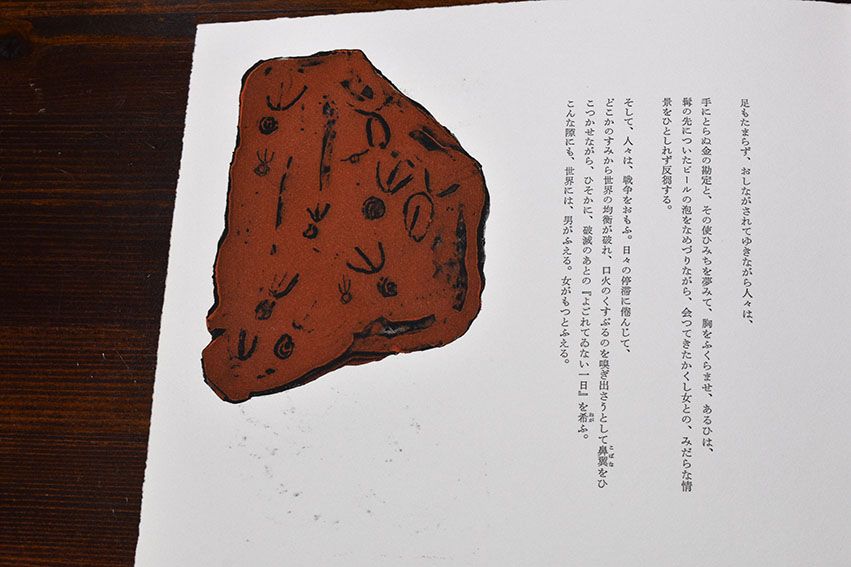 足もたまらず、おしながされてゆきながら人々は、
手にとらぬ金の勘定と、その使ひみちを夢みて、胸をふくらませ、あるひは、
髯の先についたビールの泡をなめづりながら、会つてきたかくし女との、みだらな情
景をひとしれず反芻する。
そして、人々は、戦争をおもふ。日々の停滞に倦んじて、
どこかのすみから世界の均衡が破れ、口火のくすぶるのを嗅ぎ出さうとして鼻翼をひ
こつかせながら、ひそかに、破滅のあとの『よごれてゐない一日』を希ふ。
こんな隙にも、世界には、男がふえる。女がもつとふえる。